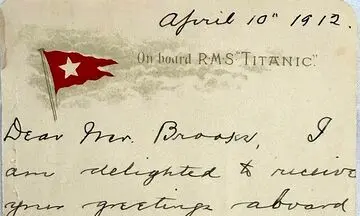 April 10" 1912.
On board RMS "TITANIC".
Dear Mr. Brooks, I
am delighted to receive
your greetings aboard